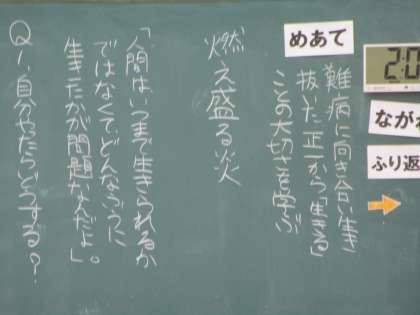 めあて
難病に向き合い生き
抜いた正一から「生きる」
ことの大切さを学ぶ
燃え盛る炎
「人間はいつまで生きられるか
ではなくて、どんなふうに
生きたかが問題なんだよ」。
Q1、自分やったらどうする？
2:0
ながれ
ふり返